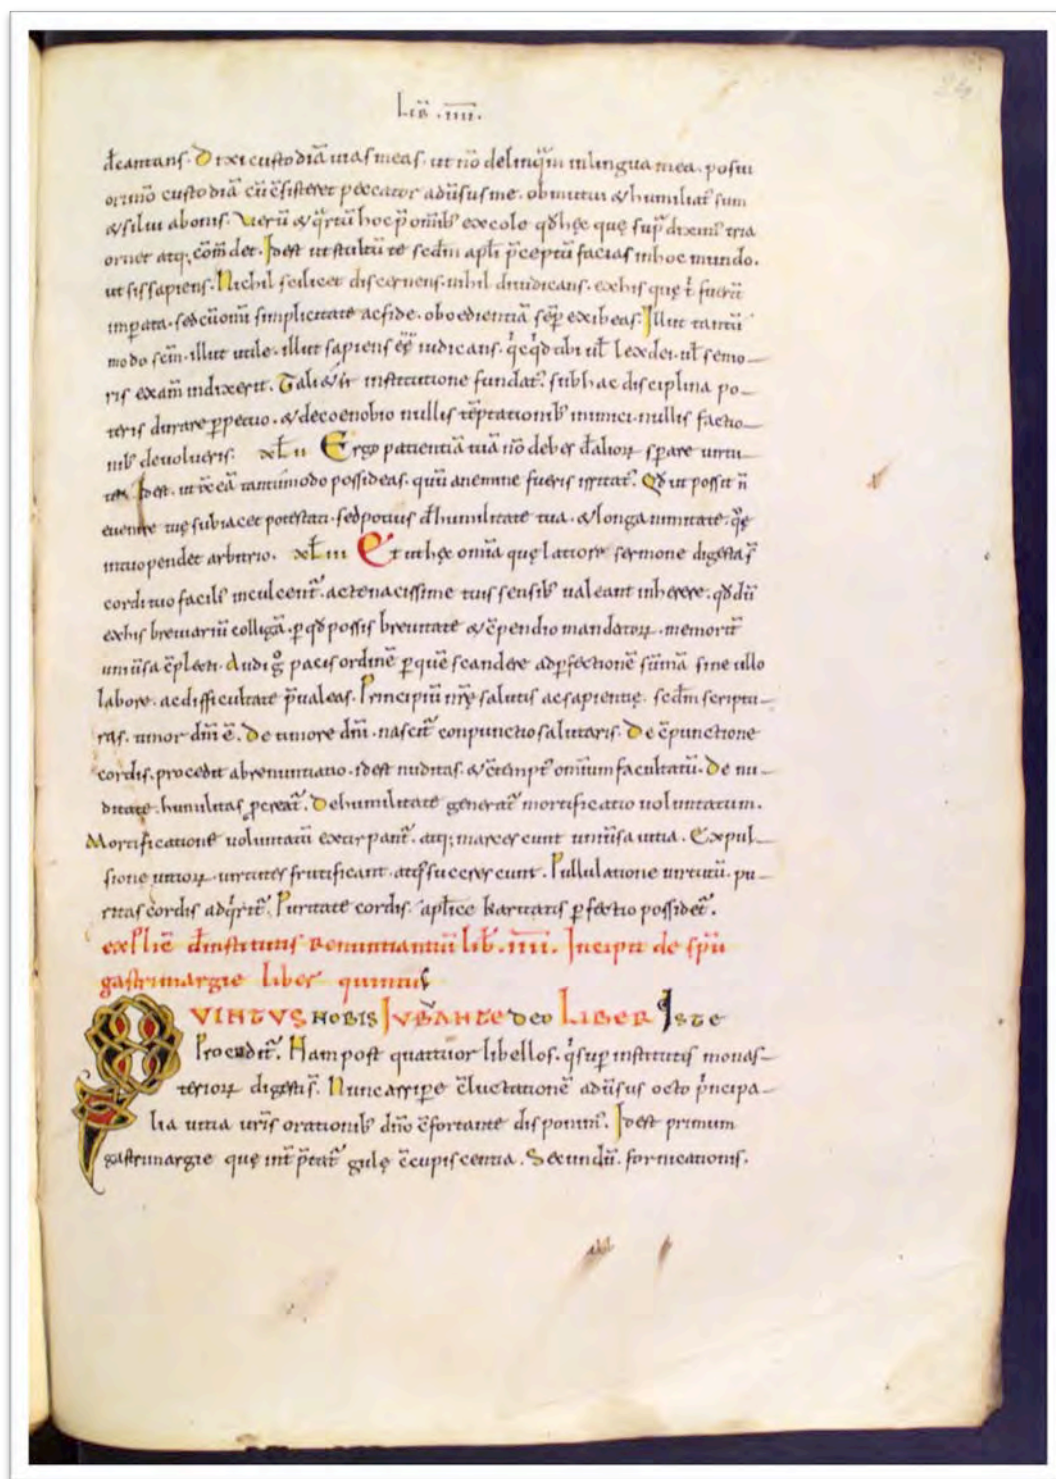 Lib̄ .IIII.
24
d̄cantans. Dixi custodiā uias meas. ut nō delinq̄m in lingua mea. posui
ori meo custodiā cū c̄sisteret peccator aduersū me. obmutui & humiliat᷒ sum
& silui a bonis. Verū & q̄rtū hoc p̄ omīb᷒ excolo qd̄ hęc quę sup̄ diximus tria
ornet atq; cōm̄det. Idest ut stultū te sed̄m apl̄i p̄ceptū facias in hoc mundo.
ut sis sapiens. Nichil scilicet discernens. nihil diiudicans. ex his quę t᷒ fuerū
imperata. sed cū om̄i simplicitate ac fide. oboedientiā sēp exibeas. Illut tantū
modo sc̄m. illut utile. illut sapiens eē iudicans. qcqd tibi ul̄ lex dei. ul̄ senio-
ris exam̄ indixerit. Tali & ł institutione fundat᷒. sub hac disciplina po-
teris durare ꝑpetuo. & de coenobio nullis tēptationib᷒ inimici. nullis factio-
nib᷒ deuolueris. XLII Ergo patientiā tuā nō debes d̄ alioꝝ sperare uirtu-
te. Idest. ut tc̄ eā tantūmodo possideas. quū a nemine fueris irritat᷒. Qd̄ ut possit n̄
euenire tuę subiacet potestati. sed potius d̄ humilitate tua. & longanimitate. quę
in tuo pendet arbitrio. XLIII Et ut hęc omīa quę latiore sermone digesta s̄
cordi tuo facili᷒ inculcent᷒. ac tenacissime tuis sensib᷒ ualeant inherere. qd̄dā
ex his breuiariū colligā. ꝑ qd̄ possis breuitate & c̄pendio mandatoꝝ. memorit᷒
uniūsa c̄plecti. Audi g᷒ pacis ordinē ꝑ quē scandere ad ꝑfectionē sūmā sine ullo
labore. ac difficultate p̄ualeas. Principiū nr̄ę salutis ac sapientię. sed̄m scriptu-
ras. timor dn̄i ē. De timore dn̄i. nascit᷒ conpunctio salutaris. De c̄punctione
cordis. procedit abrenuntiatio. idest nuditas. & c̄tempt᷒ omnium facultatū. De nu-
ditate. humilitas ꝓcreat᷒. De humilitate generat᷒ mortificatio uoluntatum.
Mortificatione uoluntatū extirpant᷒. atq; marcescunt uniūsa uitia. Expul-
sione uitioꝝ. uirtutes frutificant. atq; succrescunt. Pullulatione uirtutū. pu-
ritas cordis adqrit᷒. Puritate cordis. apl̄ice karitatis ꝑfectio posside᷒t.
explīc d̄ institutis renuntiantiū lib̄. IIII. Incipit de spū
gastrimargie liber quintus
QVINTVS NOBIS IVBANTE deo LIBER Iste
Procedit᷒. Nam post quattuor libellos. q̄ super institutis monas-
terioꝝ digesti s̄. Nunc arripere c̄luctationē aduersus octo principa-
lia uitia uris orationib᷒ dn̄o c̄fortante disponim᷒. Idest primum
gastrimargie quę int᷒p̄tat᷒ gulę c̄cupiscentia. Secundū. fornicationis.